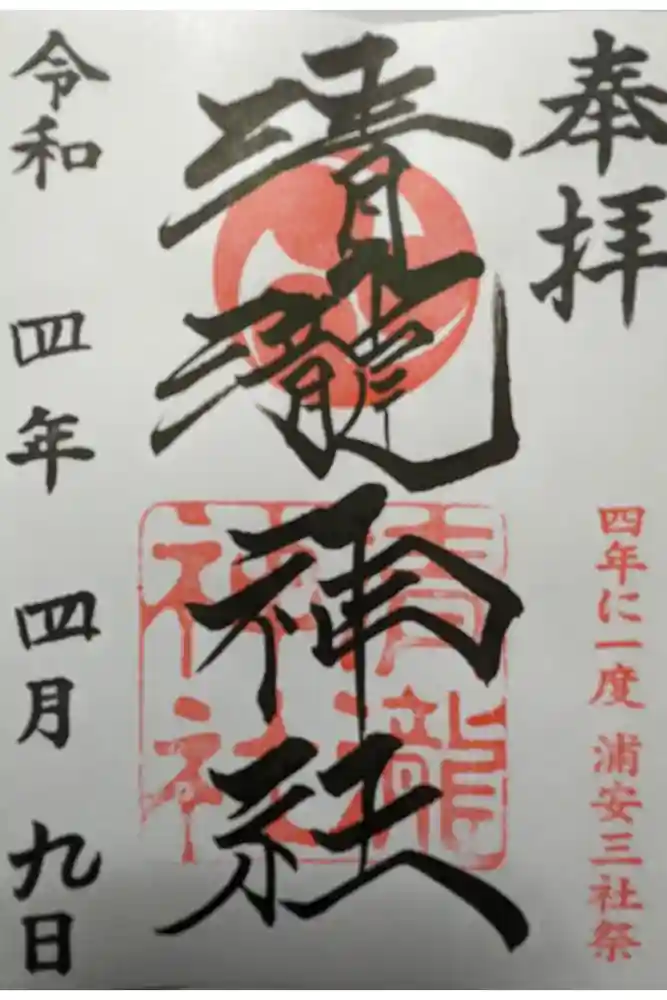 奉拝
四年に一度 浦安三社祭
清瀧神社
清瀧神社
令和 四年 四月 九日